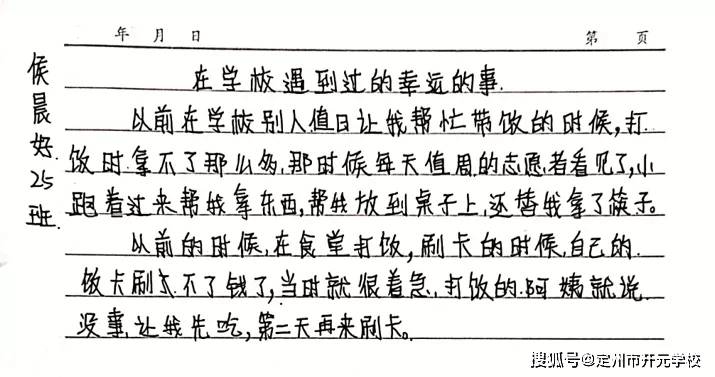 年 月 日 第 页
侯晨好 25班
在学校遇到过的幸运的事.
以前在学校别人值日让我帮忙带饭的时候,打
饭时.拿不了那么多,那时候每天值周的志愿者看见了,小
跑着过来帮我拿东西,帮我放到桌子上,还替我拿了筷子。
以前的时候,在食堂打饭,刷卡的时候,自己的
饭卡刷不了钱了,当时就很着急,打饭的阿姨就说
没事,让我先吃,第二天再来刷卡。
搜狐号@定州市开元学校